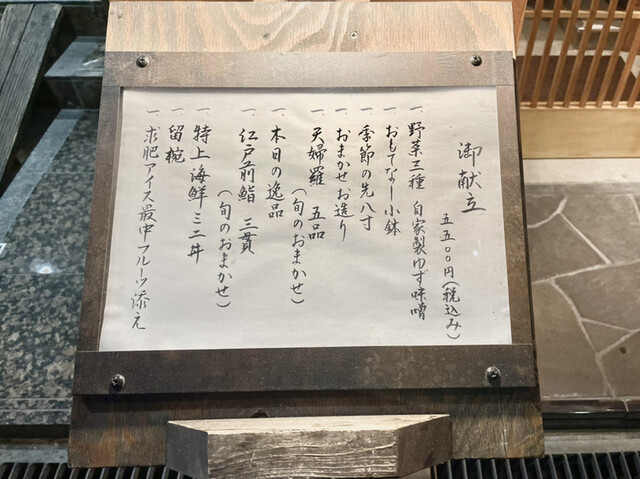 御献立
五五〇〇円(税込み)
一、野菜三種 自家製ゆず味噌
一、おもてなし小鉢
一、季節の先八寸
一、おまかせお造り
一、天婦羅 五品
(旬のおまかせ)
一、本日の逸品
一、江戸前鮨 三貫
(旬のおまかせ)
一、特上海鮮ミニ丼
一、留椀
一、求肥アイス最中フルーツ添え